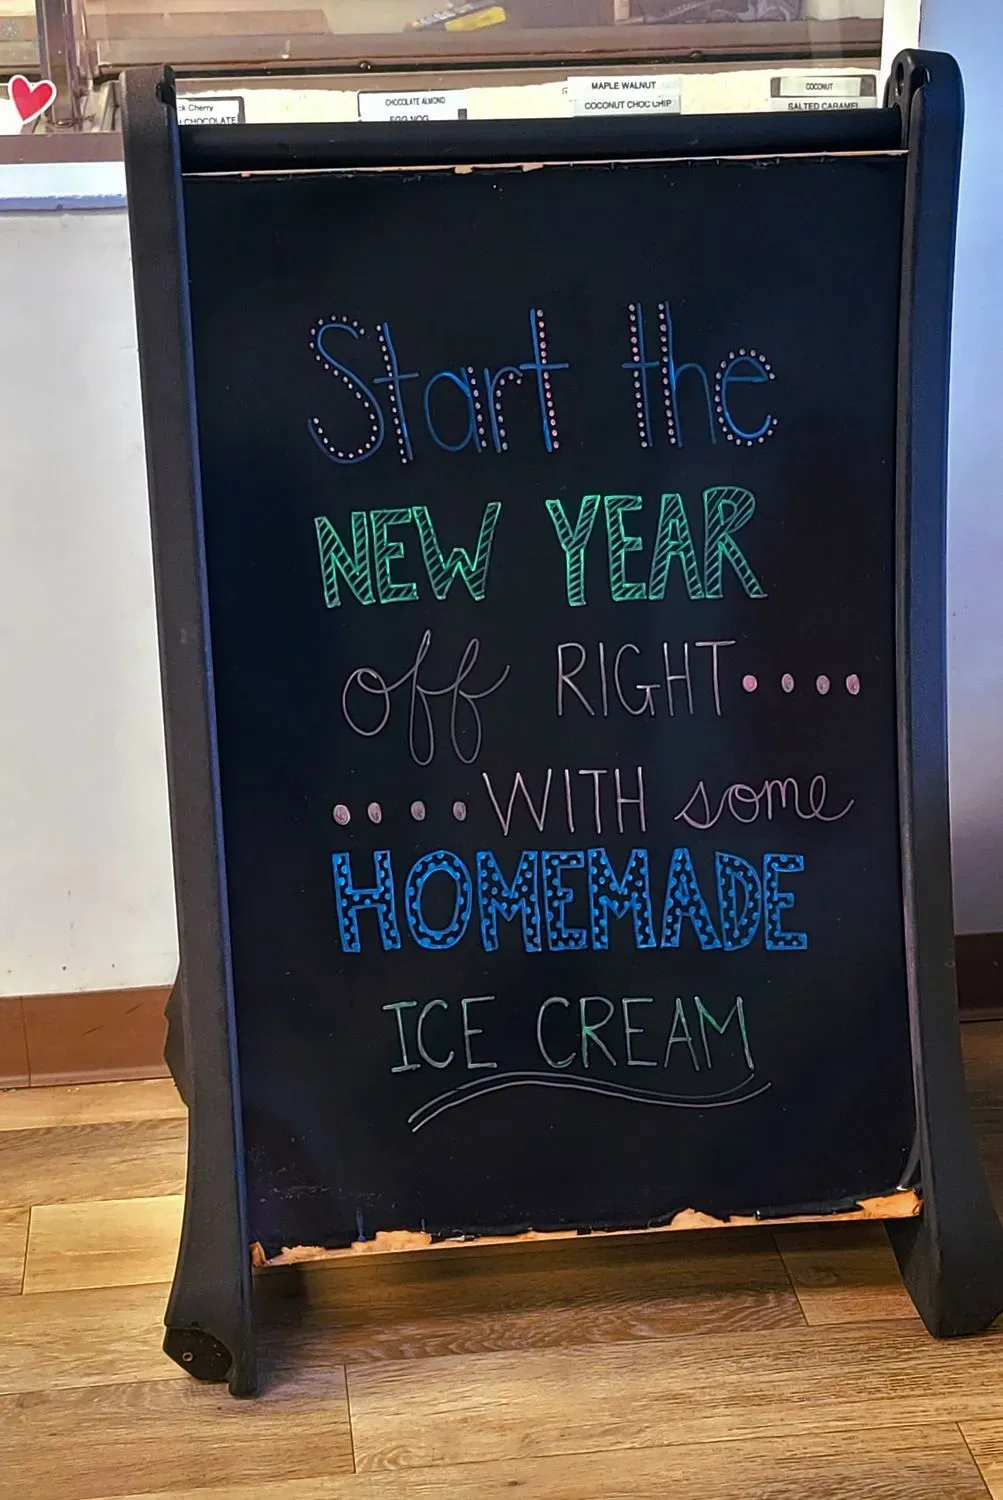 ck Cherry
CHOCOLATE
CHOCOLATE ALMOND
EGG NOG
MAPLE WALNUT
COCONUT CHOC CHIP
COCONUT
SALTED CARAMEL
Start the
NEW YEAR
off RIGHT....
....WITH some
HOMEMADE
ICE CREAM